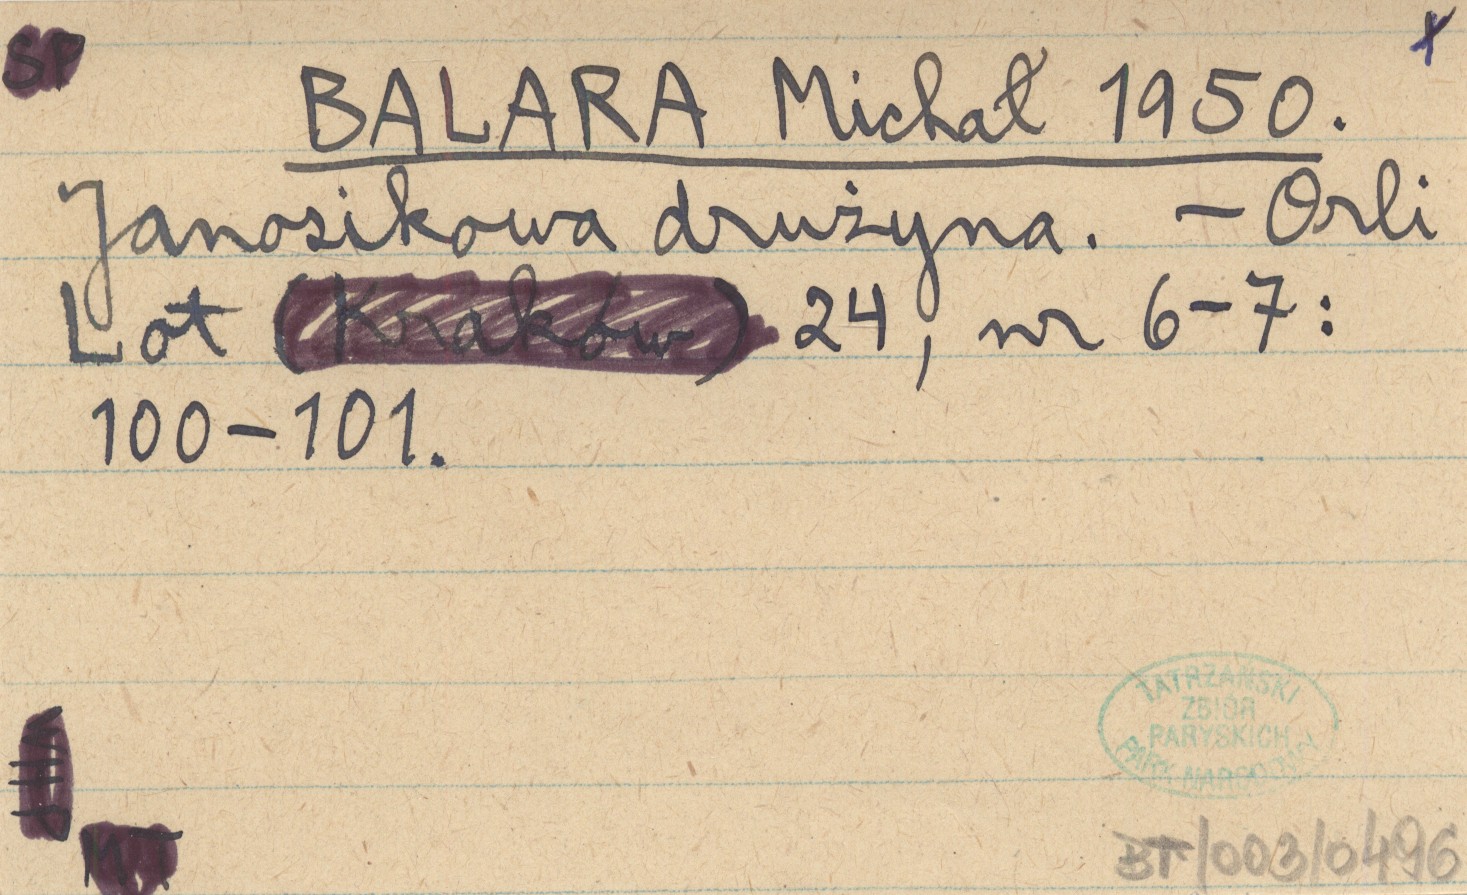 SP
x
BALARA Michał 1950.
Janosikowa drużyna. – Orli
Lot (Kraków) 24, nr 6–7:
100–101.
TATRZAŃSKI
ZBIÓR
PARYSKICH
PARK NARODOWY
MT
BT/003/0496